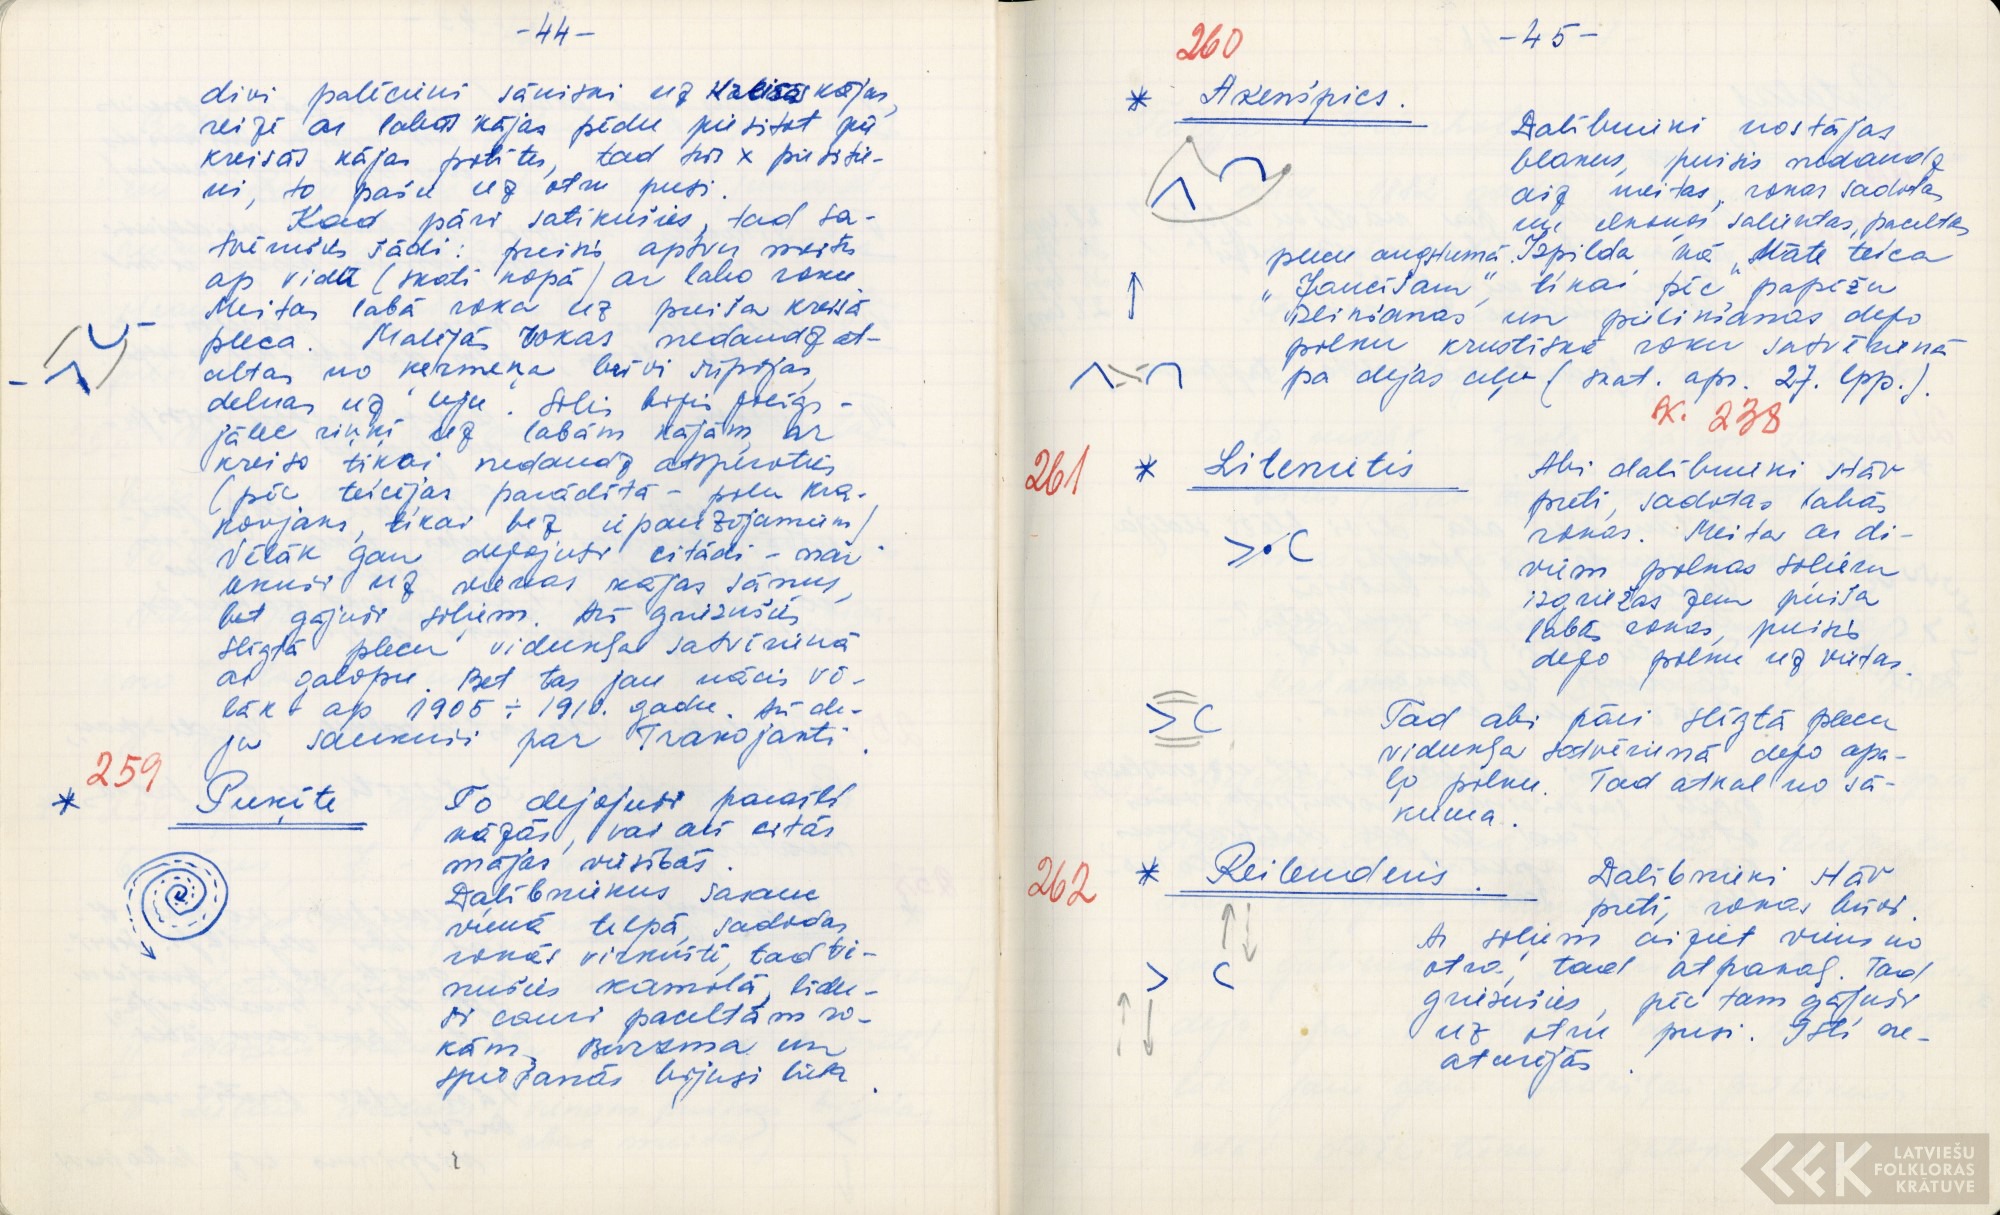 -44-
divi palēcieni sāniski uz kreisās kājas,
reizē ar labās kājas pēdu piesitot pie
kreisās kājas potītes, tad trīs x piesitie-
ni, to pašu uz otru pusi.
Kad pāri satikušies, tad sa-
tvērušies šādi: puisis aptver meitu
ap vidu (skati kopā) ar labo roku
Meitas labā roka uz puiša kreisā
pleca. Malējās rokas nedaudz at-
altas no ķermeņa brīvi šūpojas,
delnas uz leju. Solis bijis polkas-
jālec riņķī uz labām kājām, ar
kreiso tikai nedaudz atsperoties
(pēc teicējas parādītā - poļu kra-
kovjaks, tikai bez
Vēlāk gan dejojuši citādi - nav
lēkuši uz vienas kājas sānus,
bet gājuši soļiem. Arī griezušies
slēgtā plecu vidukļa satvērienā
ar galopu. Bet tas jau nācis vē-
lāk - ap 1905 ÷ 1910. gadu. Šo de-
ju saukuši par Trakojanti.
259
* Puķīte
To dejojuši parasti
kāzās, vai arī citās
mājas viesībās.
Dalībniekus sasauc
vienā telpā, sadodas
rokās virknītē, tad ti-
nušies kamolā, līdu-
ši cauri paceltām ro-
kām. Burzma un
spiešanās bijusi liela.
260
-45-
* Ažeņspics.
Dalībnieki nostājas
blakus, puisis nedaudz
aiz meitas, rokas sadotas
un elkoņos saliektas, paceltas
plecu augstumā. Izpilda kā "Māte teica
"Jancīšam", tikai pēc papēžu
izlikšanas un pielikšanas dejo
polku krustiskā roku satvērienā
pa dejas aļu (skat. apr. 27. lpp.).
K. 238
261
* Litenitis
Abi dalībnieki stāv
pretī, sadotas labās
rokas. Meita ar di-
viem polkas soļiem
izgriežas zem puiša
labās rokas, puisis
dejo polku uz vietas.
Tad abi pāri slēgtā plecu
vidukļa satvērienā dejo apa-
ļo polku. Tad atkal no sā-
kuma.
262
* Reilenderis.
Dalībnieki stāv
pretī, rokas brīvi.
Ar soļiem aiziet viens no
otra, tad atpakaļ. Tad
griezušies, pēc tam gājuši
uz otru pusi. Īsti ne-
atcerējās.
LATVIEŠU
FOLKLORAS
KRĀTUVE